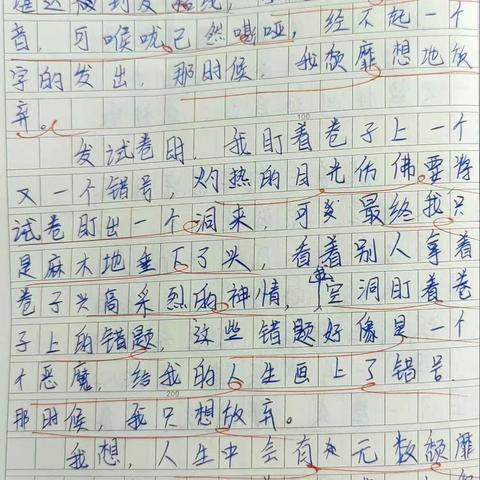 音，可喉咙已然嘶哑，经不起一个
字的发出，那时候，我颓靡想地放
弃。
100
发试卷时，我盯着卷子上一个
又一个错号，灼热的目光仿佛要将
试卷盯出一个洞来，可 最终我只
是麻木地垂下了头，看着别人拿着
卷子兴高采烈的神情，空洞盯着卷
子上的错题，这些错题好像是一个
个恶魔，给我的人生画上了错号，
200
那时候，我只想放弃。
我想，人生中会有 无数颓靡